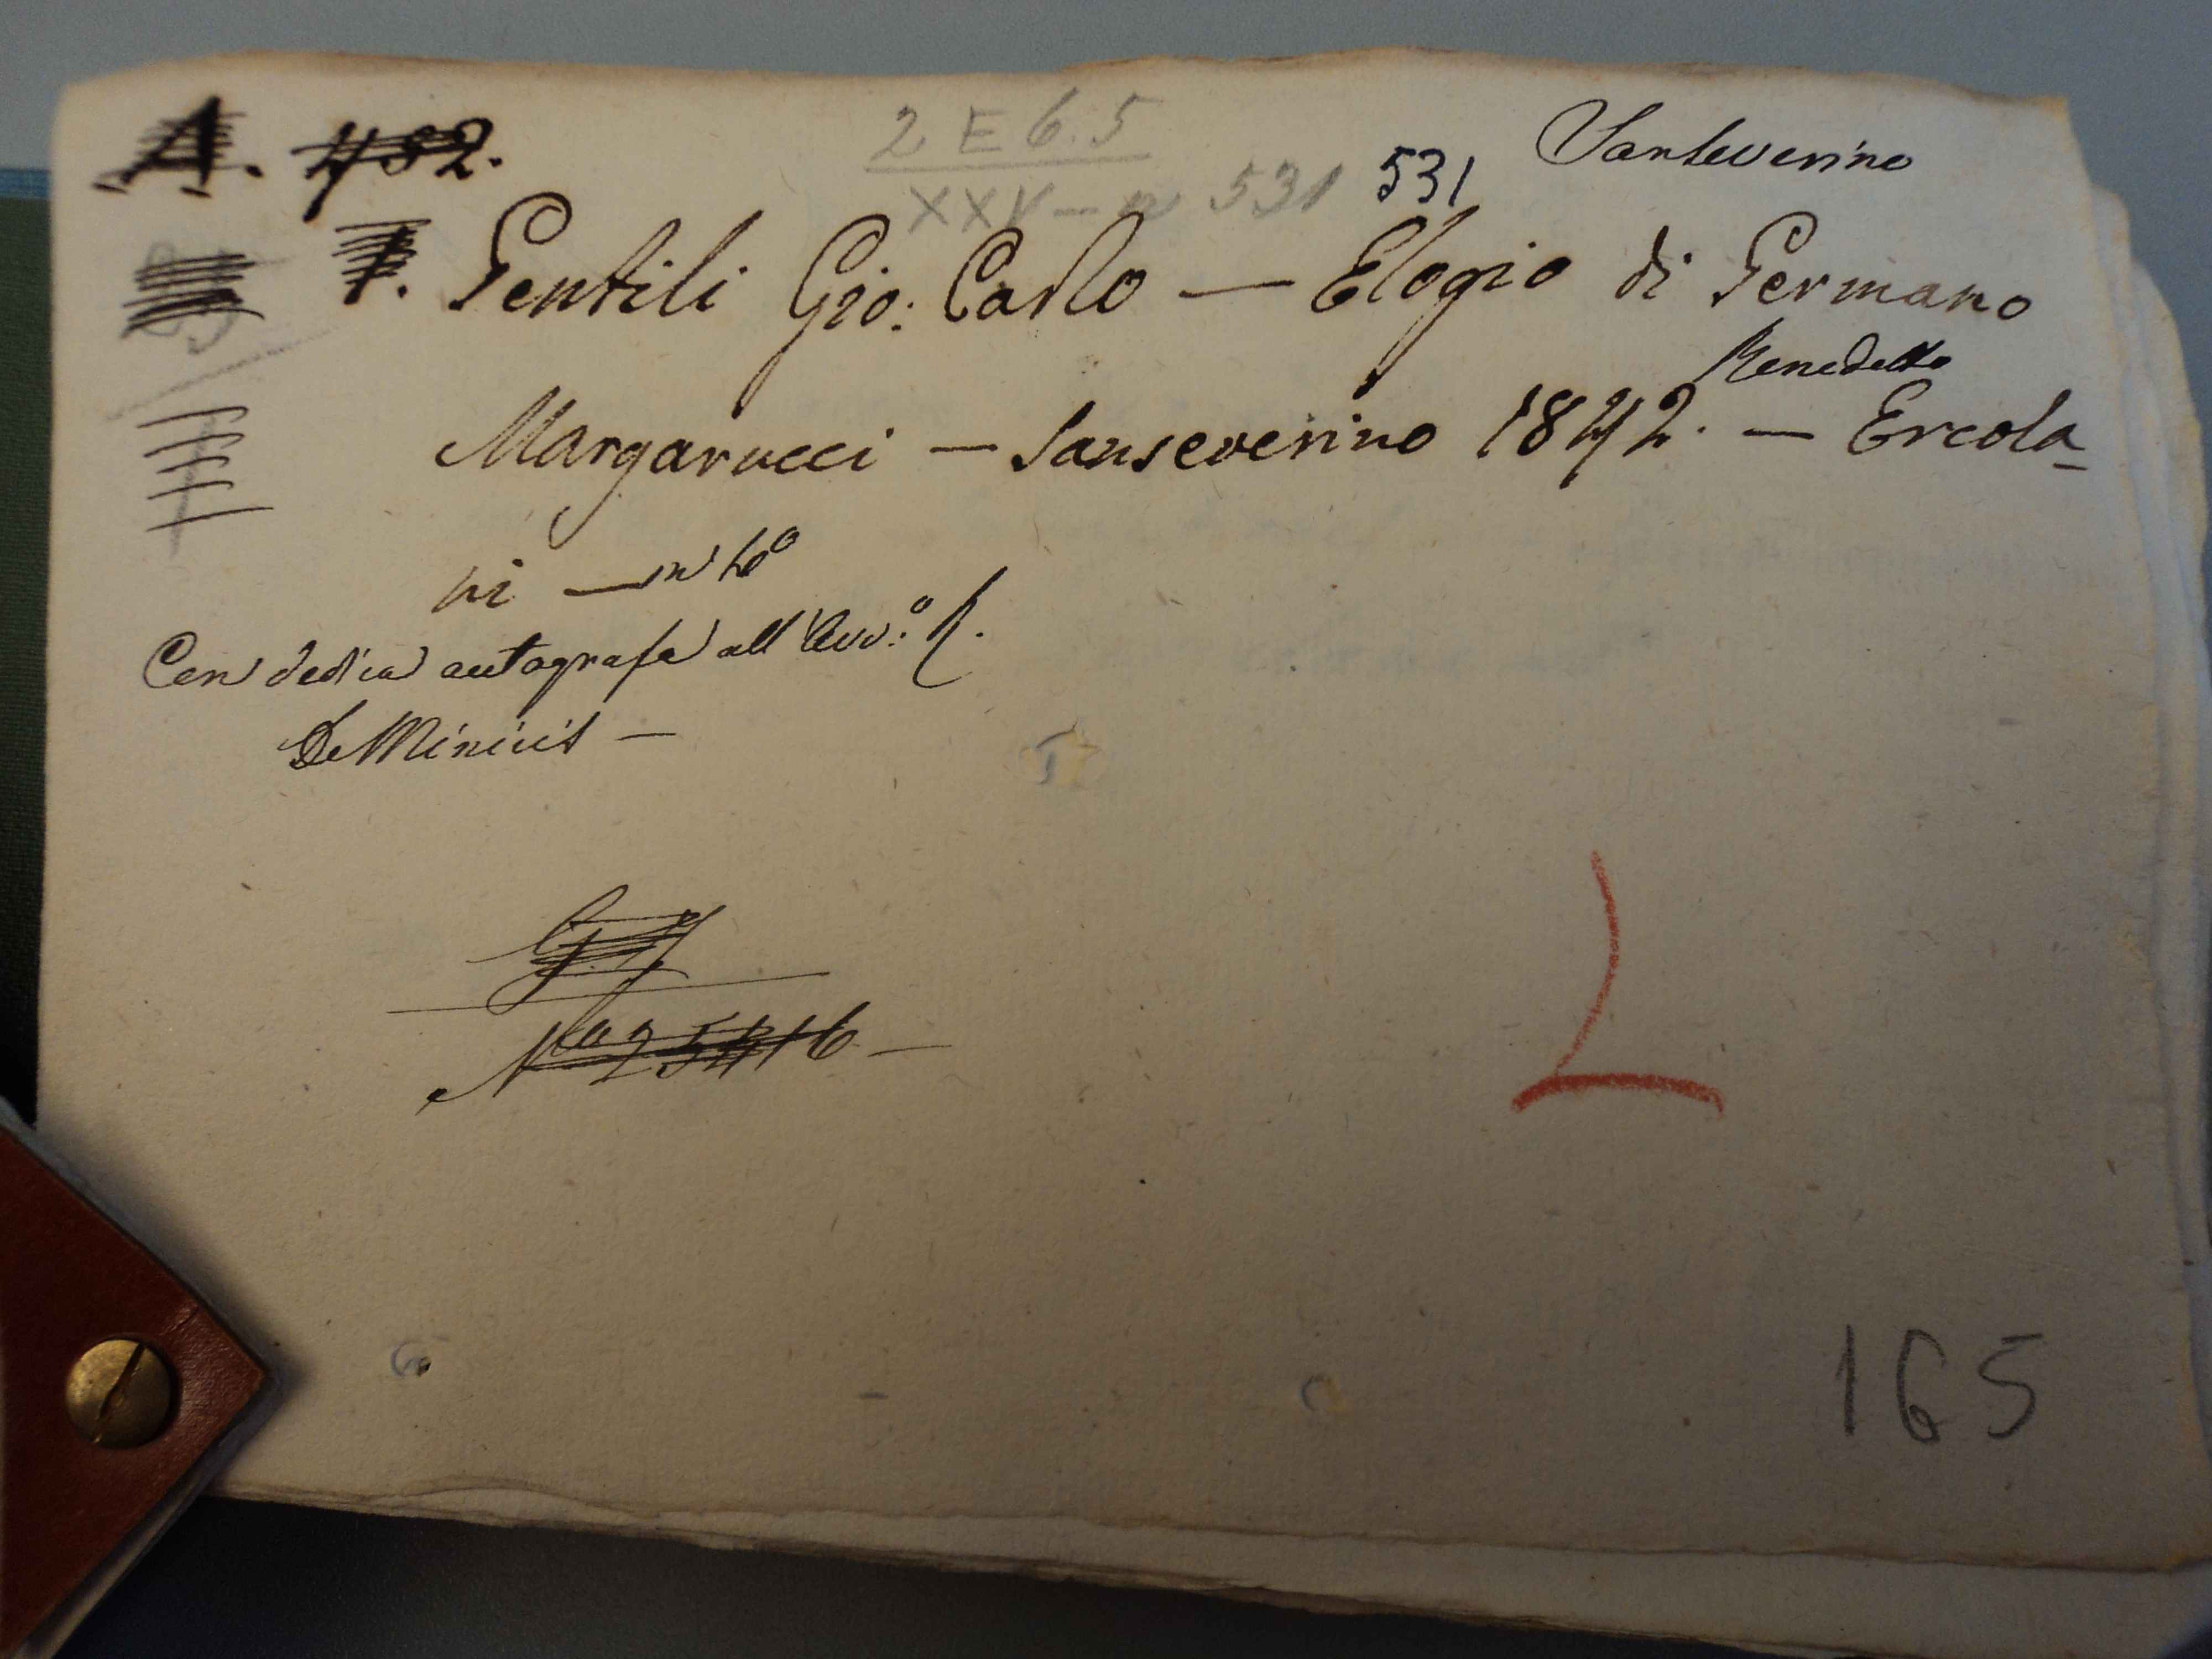 A. 452.
2 E 6.5
XXV - n 531
531
Sanseverino
1. Gentili Gio: Carlo — Elogio di Germano
Benedetto
Margarucci — Sanseverino 1842. — Ercola-
ni — in 4º
Con dedica autografa all'Avv:º R.
De Minicis —
Nº 25416 —
165